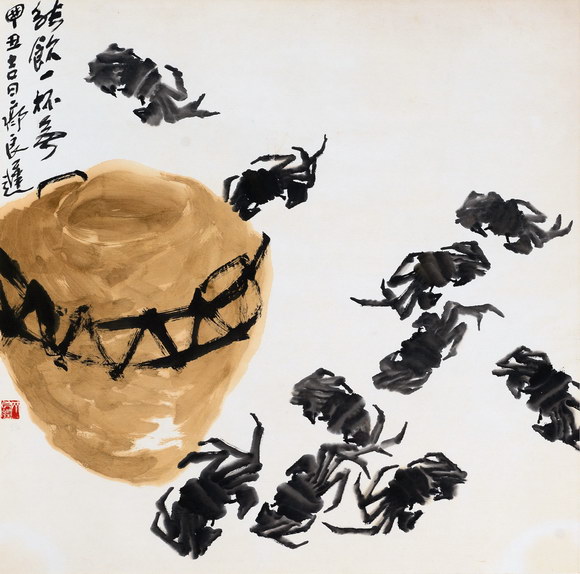 能飲一杯無
甲丑吉日齊良遲